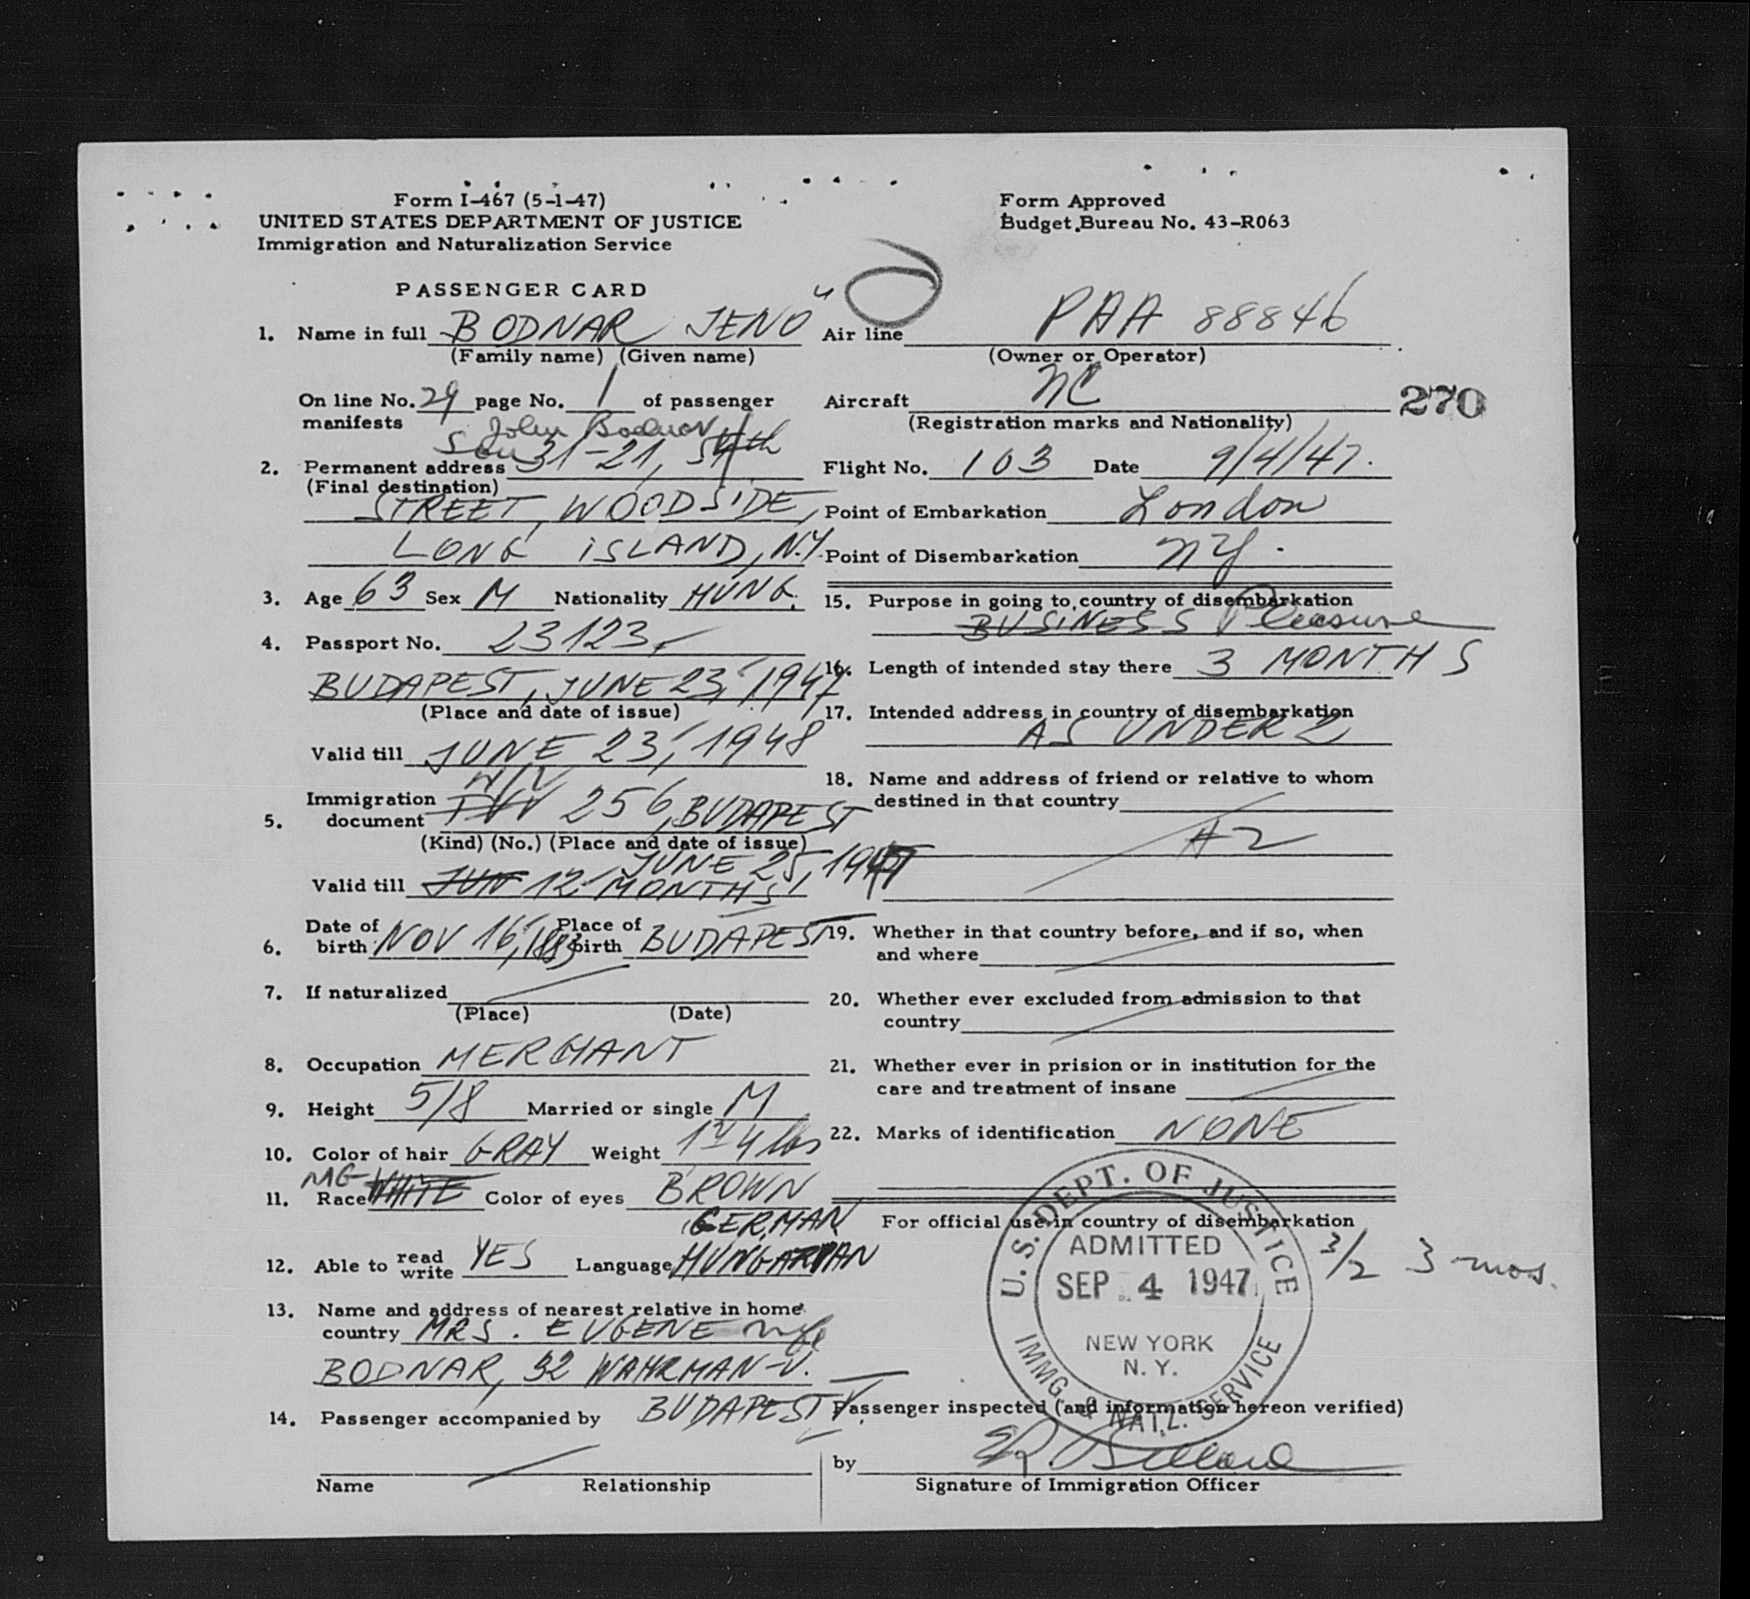 Form I-467 (5-1-47)
UNITED STATES DEPARTMENT OF JUSTICE
Immigration and Naturalization Service
Form Approved
Budget Bureau No. 43-R063
PASSENGER CARD
1. Name in full BODNAR JENŐ
(Family name) (Given name)
On line No. 29 page No. 1 of passenger
manifests
Son John Bodnar
2. Permanent address 31-21, 54th
(Final destination)
STREET, WOODSIDE,
LONG ISLAND, N.Y.
3. Age 63 Sex M Nationality HUNG.
4. Passport No. 23123
BUDAPEST, JUNE 23, 1947
(Place and date of issue)
Valid till JUNE 23, 1948
NIV
5. Immigration document 256, BUDAPEST
(Kind) (No.) (Place and date of issue)
JUNE 25, 1947
Valid till JUN 12 MONTHS
6. Date of birth NOV 16, 1883 Place of birth BUDAPEST
7. If naturalized
(Place) (Date)
8. Occupation MERCHANT
9. Height 5/8 Married or single M
10. Color of hair GRAY Weight 174 lbs
MG
11. Race WHITE Color of eyes BROWN
GERMAN
12. Able to read write YES Language HUNGARIAN
13. Name and address of nearest relative in home
country MRS. EUGENE wife
BODNAR, 32 WAHRMAN-U.
BUDAPEST V.
14. Passenger accompanied by
Name Relationship
Air line PAA 88846
(Owner or Operator)
Aircraft NC
270
(Registration marks and Nationality)
Flight No. 103 Date 9/4/47.
Point of Embarkation London
Point of Disembarkation NY.
15. Purpose in going to country of disembarkation
BUSINESS Pleasure
16. Length of intended stay there 3 MONTHS
17. Intended address in country of disembarkation
AS UNDER 2
18. Name and address of friend or relative to whom
destined in that country
# 2
19. Whether in that country before, and if so, when
and where
20. Whether ever excluded from admission to that
country
21. Whether ever in prision or in institution for the
care and treatment of insane
22. Marks of identification NONE
For official use in country of disembarkation
U.S. DEPT. OF JUSTICE
ADMITTED
SEP 4 1947
NEW YORK
N.Y.
IMMG. & NATZ. SERVICE
3/2 3 mos.
Passenger inspected (and information hereon verified)
by
Signature of Immigration Officer